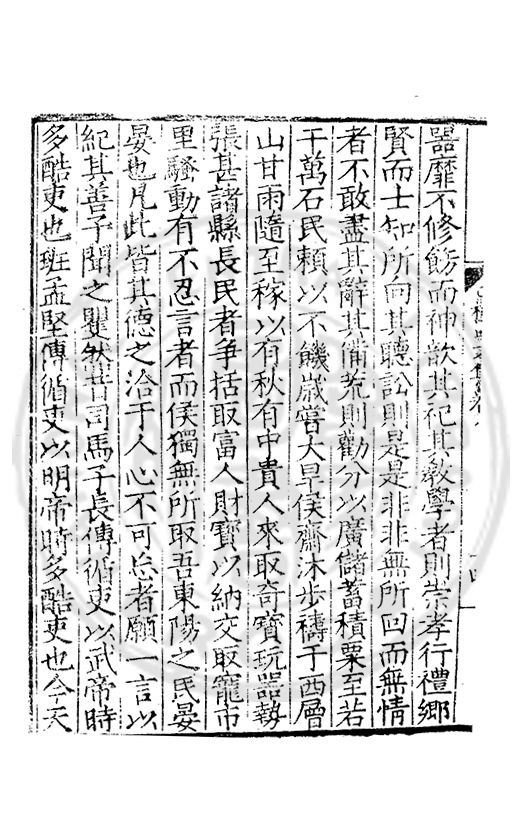 噐靡不修餙而神歆其祀其敎學者則崇孝行禮鄉
賢而士知所向其聽訟則是是非非無所回而無情
者不敢盡其辭其備荒則勸分以廣儲蓄積粟至若
干萬石民賴以不饑歲嘗大旱侯齋沐步禱于西層
山甘雨隨至稼以有秋有中貴人來取奇寶玩器勢
張甚諸縣長民者争括取富人財寶以納交取寵市
里騷動有不忍言者而侯獨無所取吾東陽之民晏
晏也凡此皆其德之洽于人心不可忘者願一言以
紀其善予聞之矍然昔司馬子長傳循吏以武帝時
多酷吏也班孟堅傳循吏以明帝時多酷吏也今天